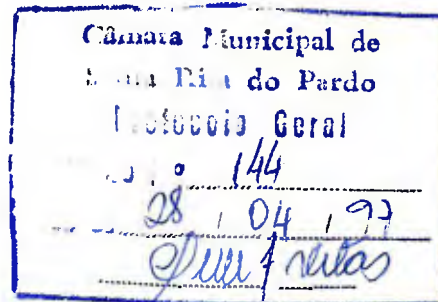 Câmara Municipal de
Santa Rita do Pardo
Protocolo Geral
144
28 / 04 / 97